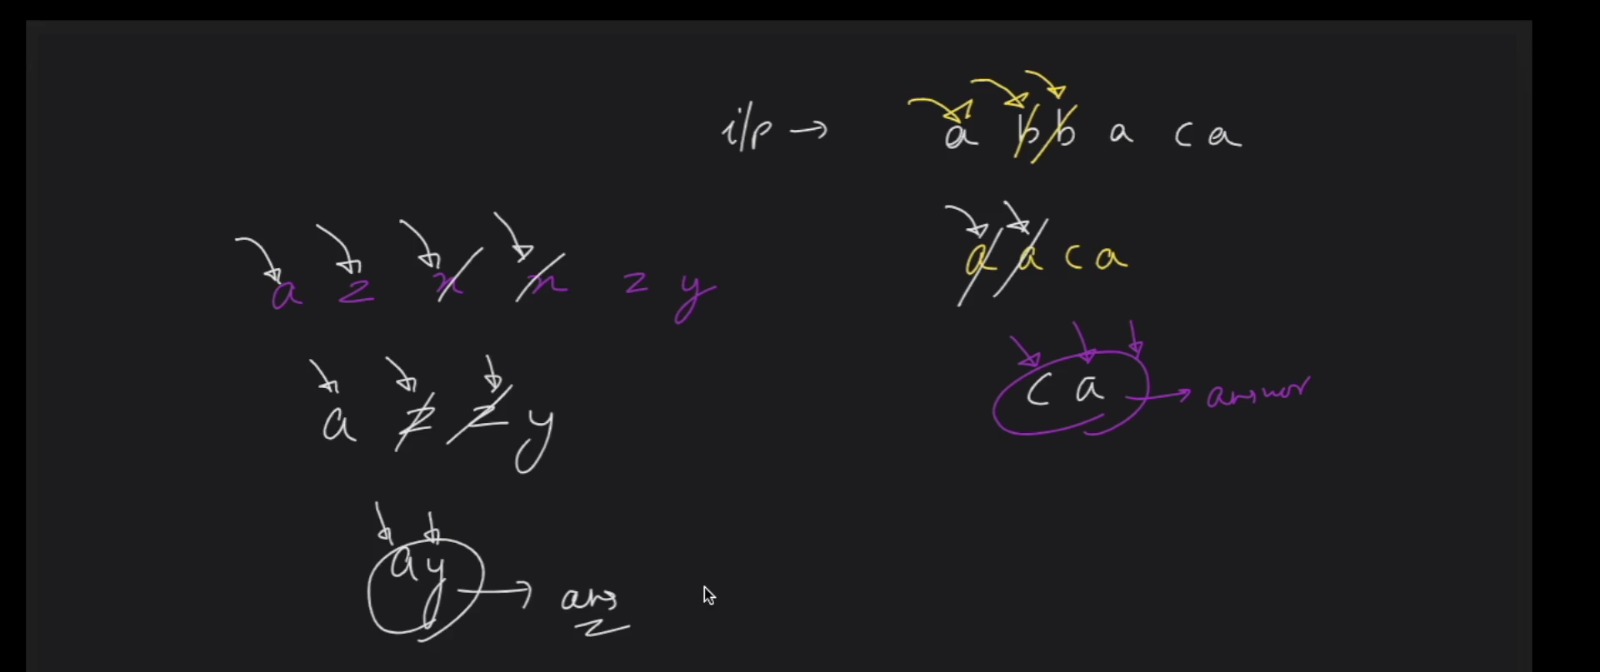 i/p → a b b a c a
a a c a
c a → answer
a z x x z y
a z z y
ay → ans